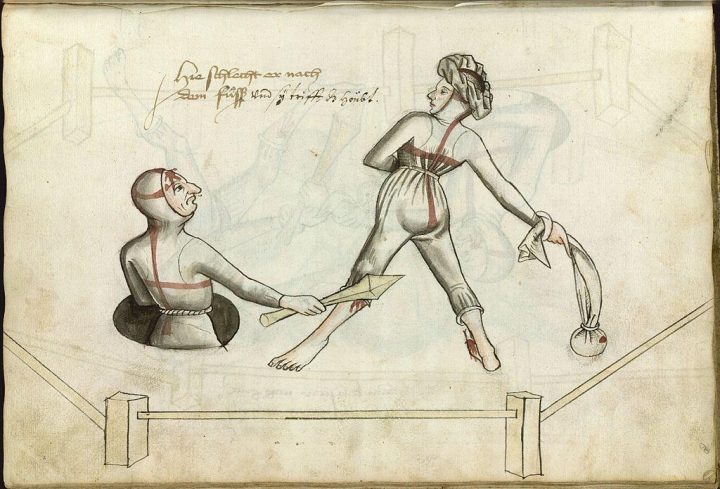 Hie schlecht er nach
dem fůſſ und ſy trifft dz hoŭbt.